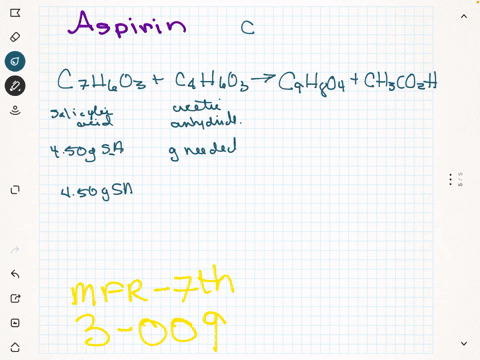 Aspirin C
C7H6O3 + C4H6O3 → C9H8O4 + CH3CO2H
salicylic acetic
acid anhydride.
4.50g SA g needed
4.50g SA
MFR-7th
3-009